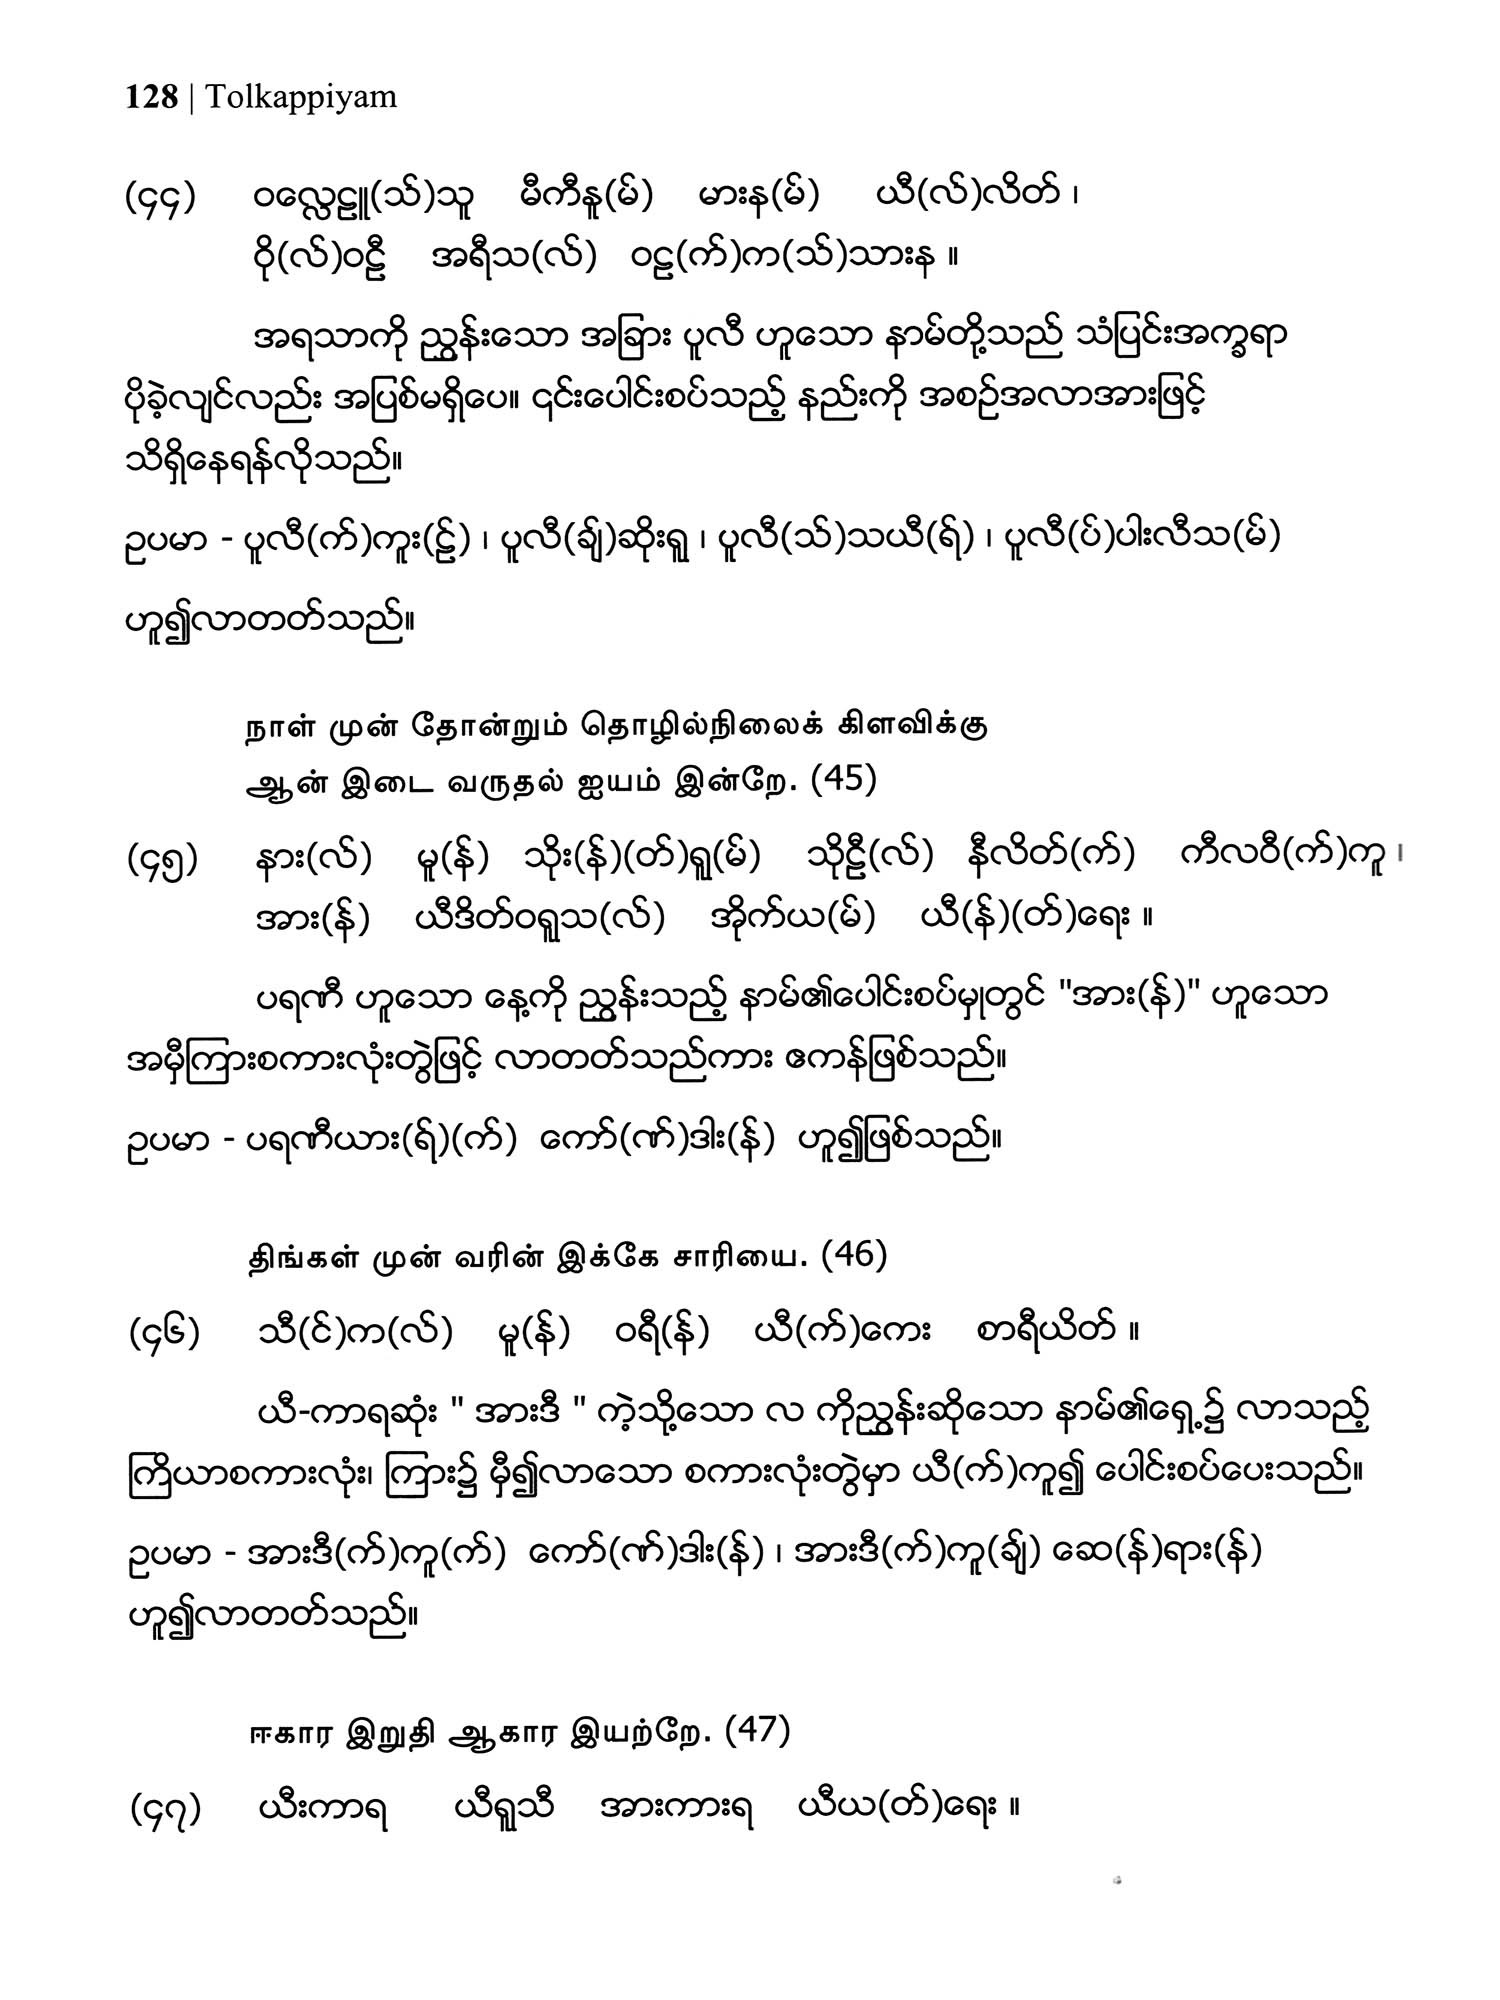 128 | Tolkappiyam
(၄၄) ဝလ္လေဠူ(သ်)သူ မီကီနူ(မ်) မားန(မ်) ယီ(လ်)လိတ် ၊
ဝို(လ်)ဝဠီ အရီသ(လ်) ဝဠ(က်)က(သ်)သားန ။
အရသာကို ညွှန်းသော အခြား ပူလီ ဟူသော နာမ်တို့သည် သံပြင်းအက္ခရာ
ပိုခဲ့လျင်လည်း အပြစ်မရှိပေ။ ၎င်းပေါင်းစပ်သည့် နည်းကို အစဉ်အလာအားဖြင့်
သိရှိနေရန်လိုသည်။
ဥပမာ - ပူလီ(က်)ကူး(ဠ်) ၊ ပူလီ(ချ်)ဆိုးရူ ၊ ပူလီ(သ်)သယီ(ရ်) ၊ ပူလီ(ပ်)ပါးလီသ(မ်)
ဟူ၍လာတတ်သည်။
நாள் முன் தோன்றும் தொழில்நிலைக் கிளவிக்கு
ஆன் இடை வருதல் ஐயம் இன்றே. (45)
(၄၅) နား(လ်) မူ(န်) သိုး(န်)(တ်)ရူ(မ်) သိုဠီ(လ်) နီလိတ်(က်) ကီလဝီ(က်)ကူ ၊
အား(န်) ယီဒိတ်ဝရူသ(လ်) အိုက်ယ(မ်) ယီ(န်)(တ်)ရေး ။
ပရဏီ ဟူသော နေ့ကို ညွှန်းသည့် နာမ်၏ပေါင်းစပ်မှုတွင် "အား(န်)" ဟူသော
အမှီကြားစကားလုံးတွဲဖြင့် လာတတ်သည်ကား ဧကန်ဖြစ်သည်။
ဥပမာ - ပရဏီယား(ရ်)(က်) ကော်(ဏ်)ဒါး(န်) ဟူ၍ဖြစ်သည်။
திங்கள் முன் வரின் இக்கே சாரியை. (46)
(၄၆) သီ(င်)က(လ်) မူ(န်) ဝရီ(န်) ယီ(က်)ကေး စာရီယိတ် ။
ယီ-ကာရဆုံး " အားဒီ " ကဲ့သို့သော လ ကိုညွှန်းဆိုသော နာမ်၏ရှေ့၌ လာသည့်
ကြိယာစကားလုံး၊ ကြား၌ မှီ၍လာသော စကားလုံးတွဲမှာ ယီ(က်)ကူ၍ ပေါင်းစပ်ပေးသည်။
ဥပမာ - အားဒီ(က်)ကူ(က်) ကော်(ဏ်)ဒါး(န်) ၊ အားဒီ(က်)ကူ(ချ်) ဆေ(န်)ရား(န်)
ဟူ၍လာတတ်သည်။
ஈகார இறுதி ஆகார இயற்றே. (47)
(၄၇) ယီးကာရ ယီရူသီ အားကားရ ယီယ(တ်)ရေး ။